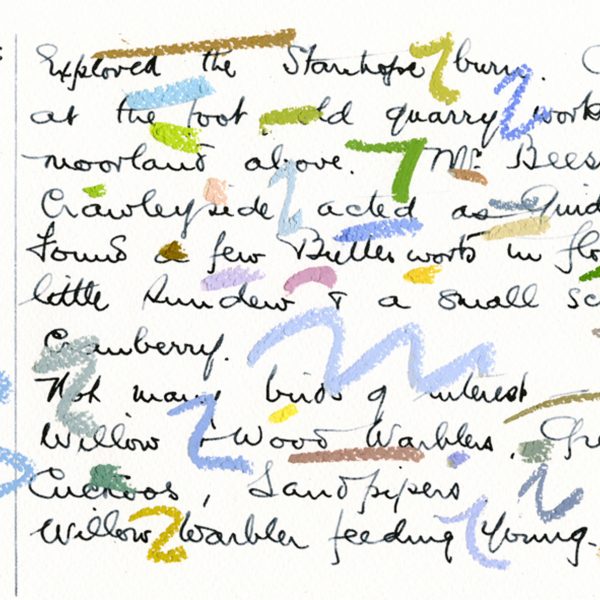 Explored the Stanhope burn.
at the foot old quarry works
moorland above. Mr. Bees
Crawleyside acted as Guid
Found a few Butterworts in flo
little Sundew & a small sc
Cranberry.
Not many birds of interest
Willow & Wood Warblers, Gre
Cuckoos, Sandpipers
Willow Warbler feeding young.